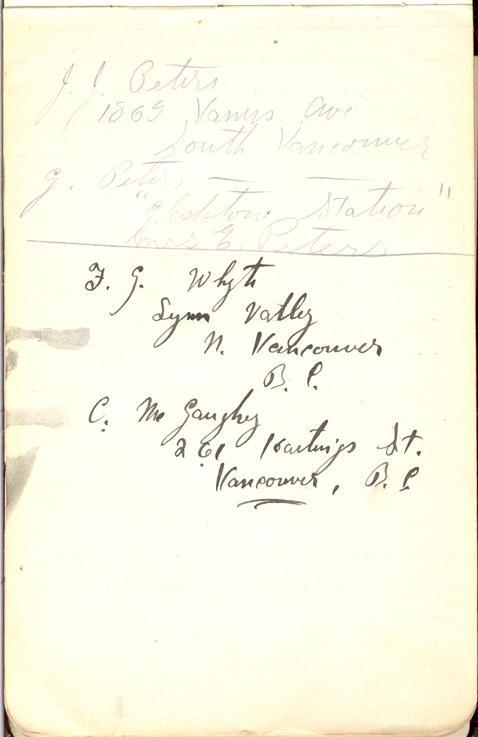 J. J. Peters
1869 Ave
South Vancouver
G. Peters
Station"
Mrs E. Peters
F. G. Whyte
Lynn Valley
N. Vancouver
B. C.
C. McGaughey
261 Hastings St.
Vancouver, B. C